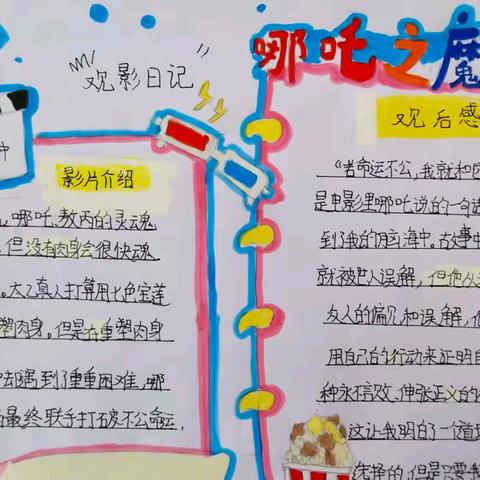 观影日记
哪吒之魔
影片介绍
哪吒、敖丙的灵魂
但没有肉身会很快魂
。太乙真人打算用七色宝莲
塑肉身。但是在重塑肉身
却遇到了重重困难,哪
最终联手打破不公命运,
观后感
“若命运不公,我就和
是电影里哪吒说的一句
到了我的脑海中。故事中
就被世人误解,但他从
友人的偏见和误解,
用自己的行动来证明自
种永不言败、伸张正义的
这让我明白了一个道
选择的,但是只要我